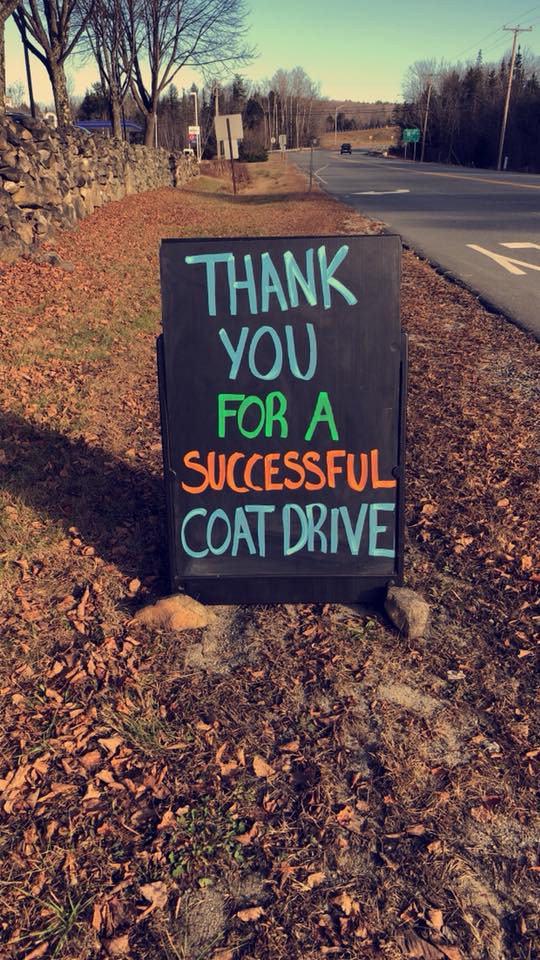 THANK
YOU
FOR A
SUCCESSFUL
COAT DRIVE